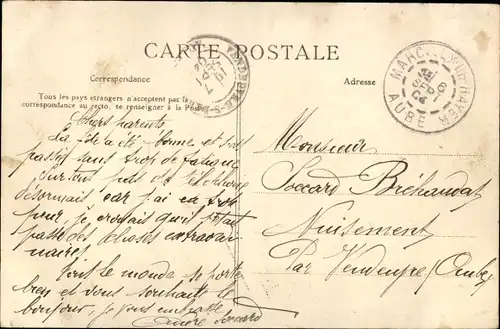 CARTE POSTALE
Correspondance
Adresse
Tous les pays étrangers n'acceptent pas la
correspondance au recto, se renseigner à la Poste
AUBE
Chers parents
La fête a été bonne et s'est
passée sans trop de fatigue
surtout pas de
désormais car j'ai eu trop
peur, je croyais qu'il s'était
passé des choses extraor-
dinaires.
Tout le monde se porte
bien et vous souhaite le
bonjour, je vous embrasse
Monsieur
Soccard Bréhaudat
Nuisement
Par Vendeuvre (Aube)